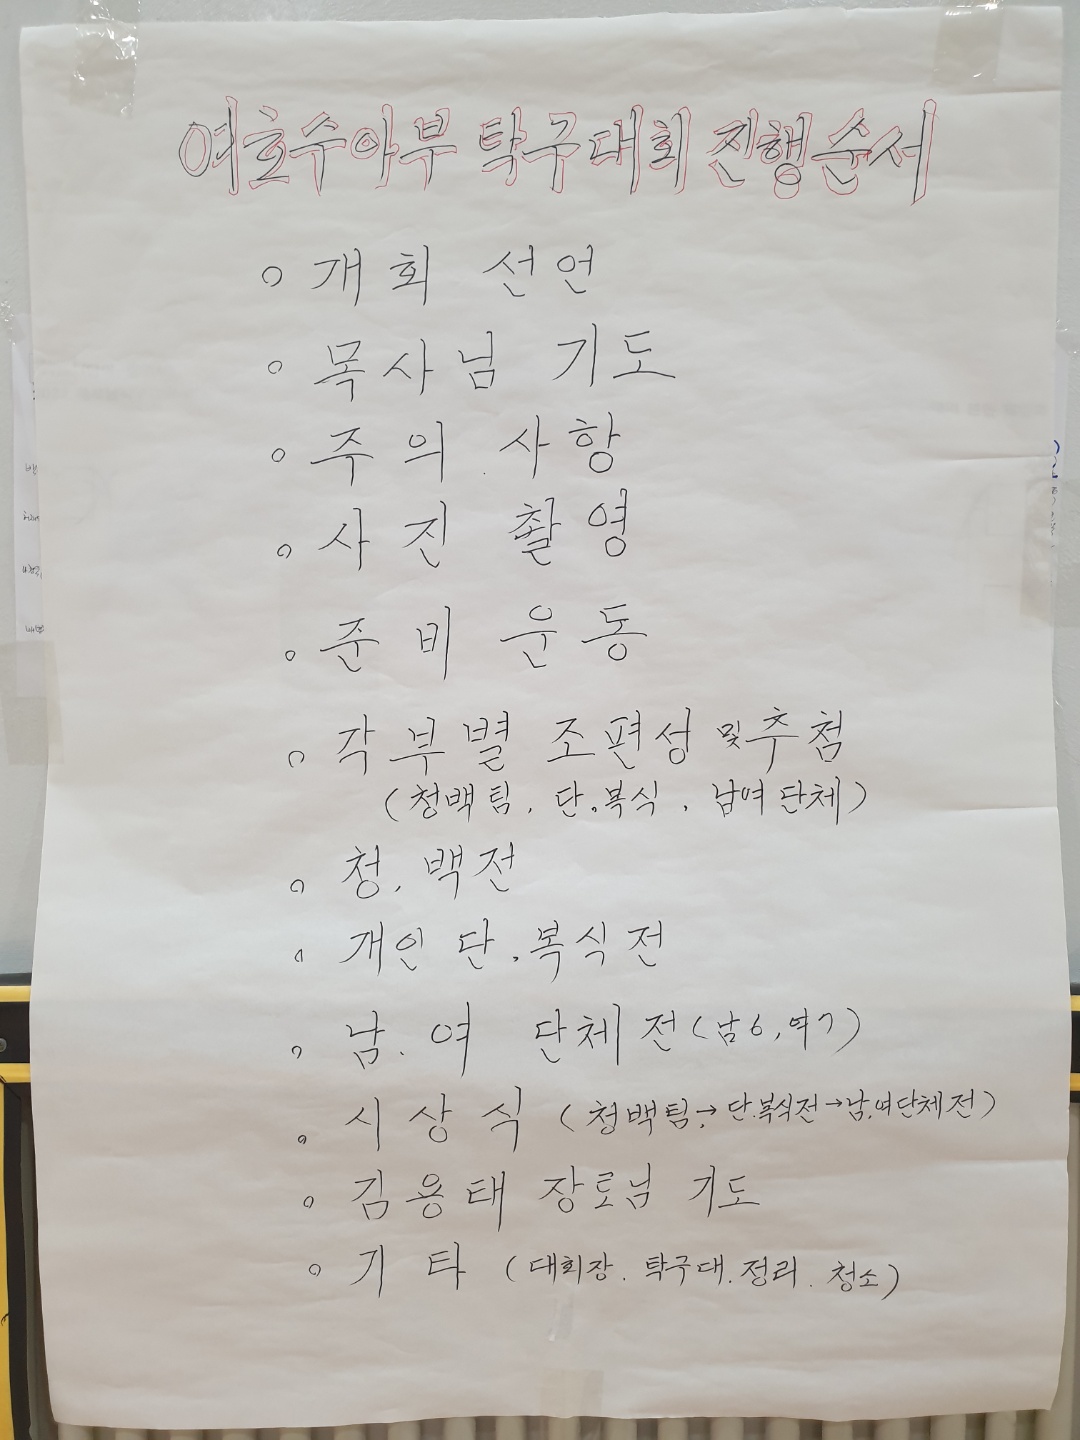 여호수아부 탁구대회 진행순서
○ 개회 선언
○ 목사님 기도
○ 주의 사항
○ 사진 촬영
○ 준비 운동
○ 각부별 조편성 및 추첨
(청백팀, 단,복식, 남여 단체)
○ 청, 백전
○ 개인 단,복식전
○ 남, 여 단체전 (남6, 여7)
○ 시상식 (청백팀→단.복식전→남,여단체전)
○ 김용태 장로님 기도
○ 기타 (대회장. 탁구대. 정리. 청소)